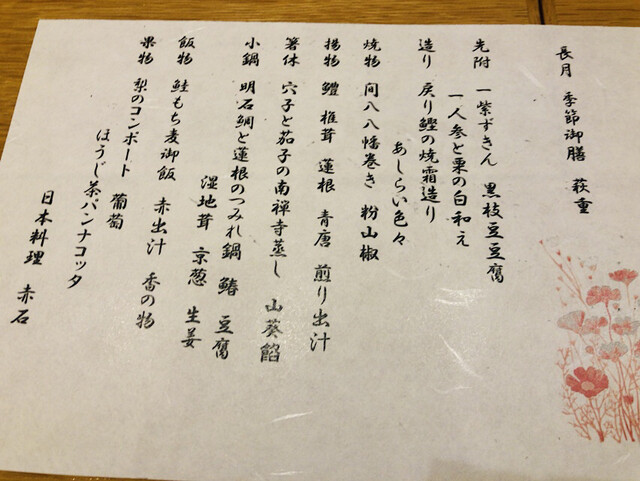 長月 季節御膳 萩重
先附 一紫ずきん 黒枝豆豆腐
一人参と栗の白和え
造り 戻り鰹の焼霜造り
あしらい色々
焼物 間八八幡巻き 粉山椒
揚物 鱧 椎茸 蓮根 青唐 煎り出汁
箸休 穴子と茄子の南禅寺蒸し 山葵餡
小鍋 明石鯛と蓮根のつみれ鍋 鰆 豆腐
湿地茸 京葱 生姜
飯物 鮭もち麦御飯 赤出汁 香の物
果物 梨のコンポート 葡萄
ほうじ茶パンナコッタ
日本料理 赤石